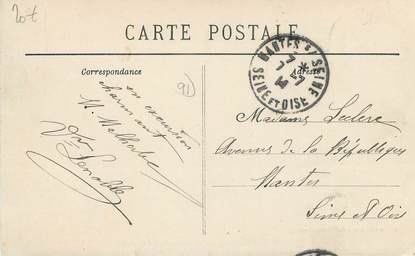 20t
CARTE POSTALE
Correspondance
Adresse
91
MANTES S/ SEINE
SEINE ET OISE
en excursion
charmant
Madame Leclerc
Avenue de la République
Mantes
Seine et Oise